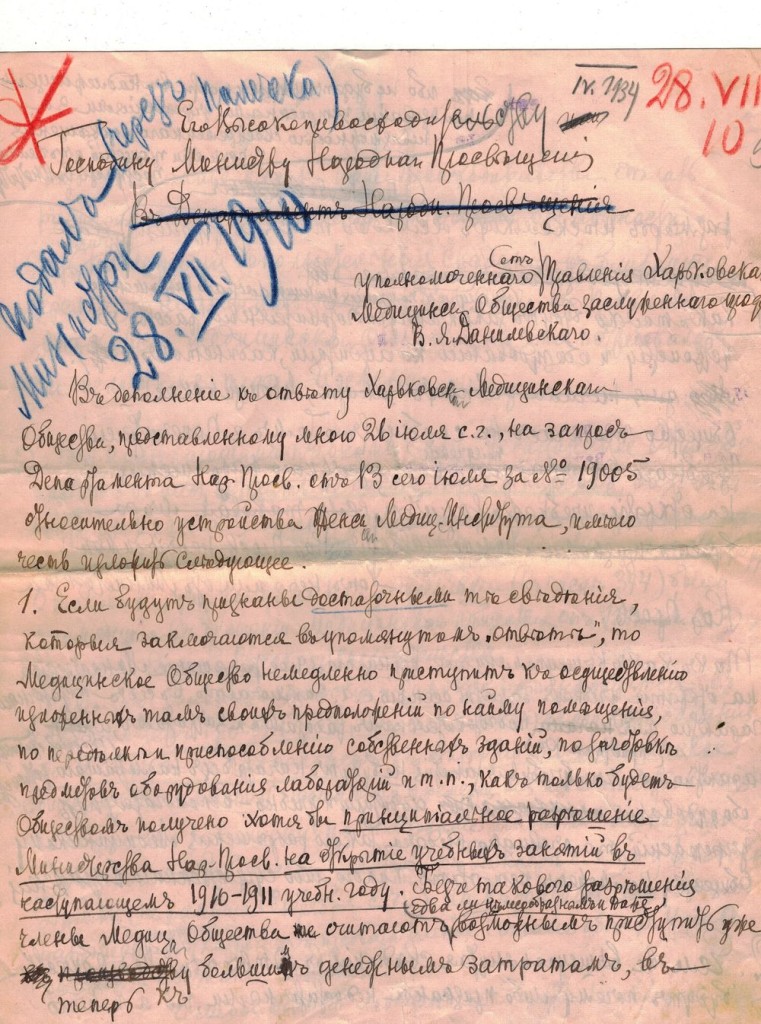 IV. 1934
28. VII
10
подалъ (черезъ
Министру
28. VII. 1910
Его Высокопревосходительству
Господину Министру Народнаго Просвѣщенія
Въ Департаментъ Народн. Просвѣщенія
уполномоченнаго (отъ) Правленія Харьковска
Медицинск Общества заслуженнаго
В. Я. Данилевскаго.
Въ дополненіе къ отвѣту Харьковск Медицинскаго
Общества, представленному мною 26 іюля с. г., на запросъ
Департамента Нар. Просв. отъ 13 сего іюля за № 19005
относительно устройства Женск Медиц. Института, имѣю
честь изложить слѣдующее.
1. Если будутъ признаны достаточными тѣ свѣдѣнія,
которыя заключаются въ упомянутомъ „отвѣтѣ", то
Медицинское Общество немедленно приступитъ къ осуществленію
изложенныхъ тамъ своихъ предположеній по найму помѣщенія,
по передѣлкѣ и приспособленію собственныхъ зданій, по заготовкѣ
предметовъ оборудованія лабораторій и т. п., какъ только будетъ
Обществомъ получено хотя бы принципіальное разрѣшеніе
Министерства Нар. Просв. на открытіе учебныхъ занятій въ
наступающемъ 1910-1911 учебн. году. Безъ таковаго разрѣшенія
едва ли цѣлесообразнымъ и даже
члены Медиц Общества считаютъ возможнымъ приступить уже
большимъ денежнымъ затратамъ, въ
теперь къ